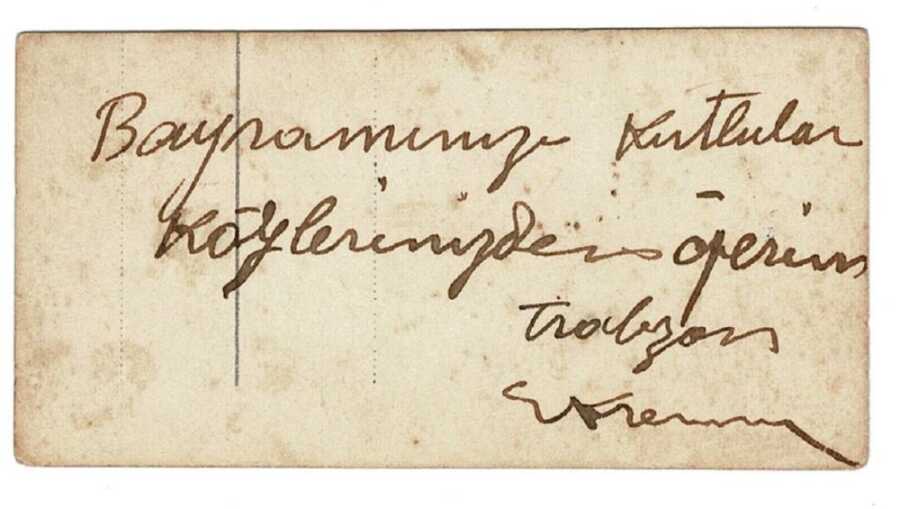 Bayramınızı Kutlular
Köylerinizden öperim
Trabzon
Ekrem